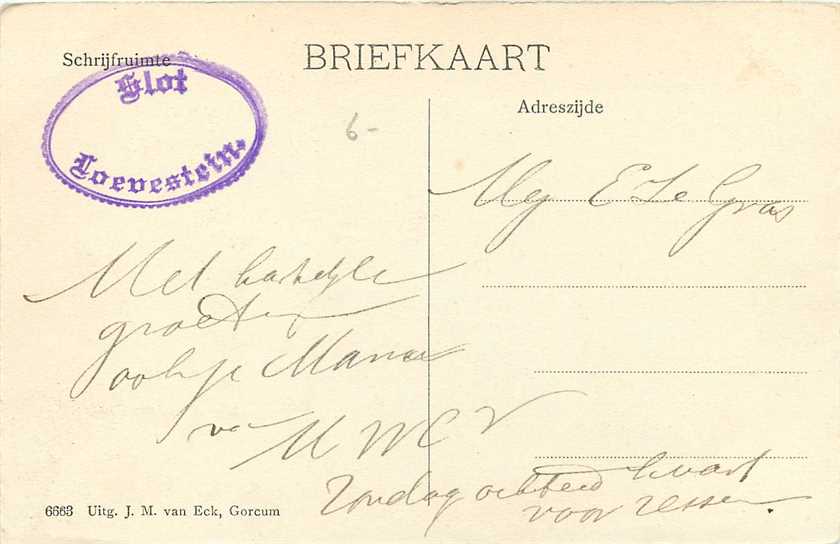 BRIEFKAART
Schrijfruimte
Slot
Loevestein.
6-
Adreszijde
Mej E Le Gras
Met hartelijke
groeten
ook je Mama
van M W C V
Zondag ochtend kwart
voor zessen.
6663 Uitg. J. M. van Eck, Gorcum